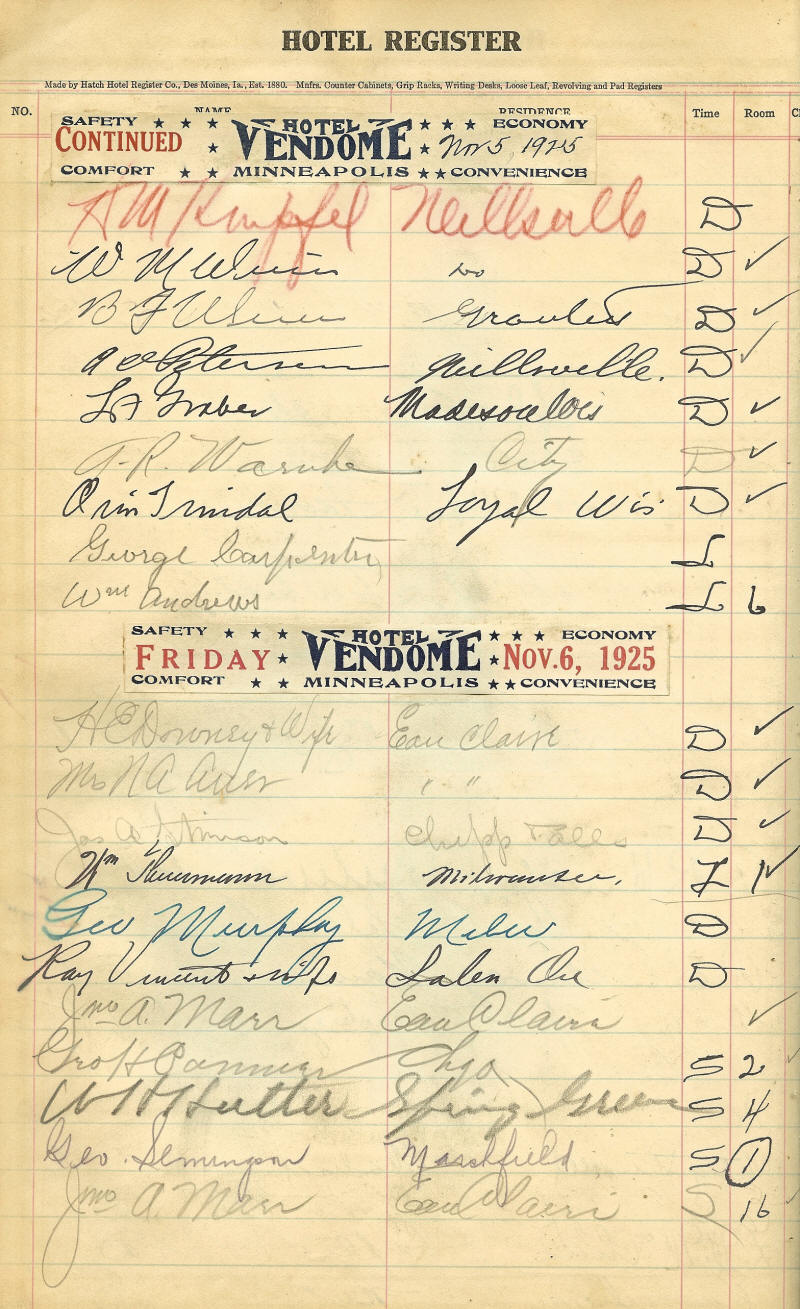 HOTEL REGISTER
Made by Hatch Hotel Register Co., Des Moines, Ia., Est. 1880. Mnfrs. Counter Cabinets, Grip Racks, Writing Desks, Loose Leaf, Revolving and Pad Registers
NO. NAME RESIDENCE Time Room
SAFETY HOTEL ECONOMY
CONTINUED VENDOME Nov 5, 1925
COMFORT MINNEAPOLIS CONVENIENCE
H M Neillsville D
W M Do D ✓
B F D ✓
A O Peterson Neillsville. D ✓
Graber Madison Wis D ✓
A. R. Warnke City D ✓
Orin Trindal Loyal Wis D ✓
George Carpenter L
Wm Andrews L 6
SAFETY HOTEL ECONOMY
FRIDAY VENDOME NOV. 6, 1925
COMFORT MINNEAPOLIS CONVENIENCE
H E Downey & Wife Eau Claire D ✓
N A Auer " " D ✓
Jas Chipp Falls D ✓
Wm Milwaukee. L 1 ✓
Geo Murphy Milw D
Ray Vincent & wife Salem Ore D
Jno A. Marr Eau Claire ✓
Geo H Chgo S 2
W H Hutter Spring Green S 4
Geo. Marshfield S 1
Jno A. Marr Eau Claire S 16